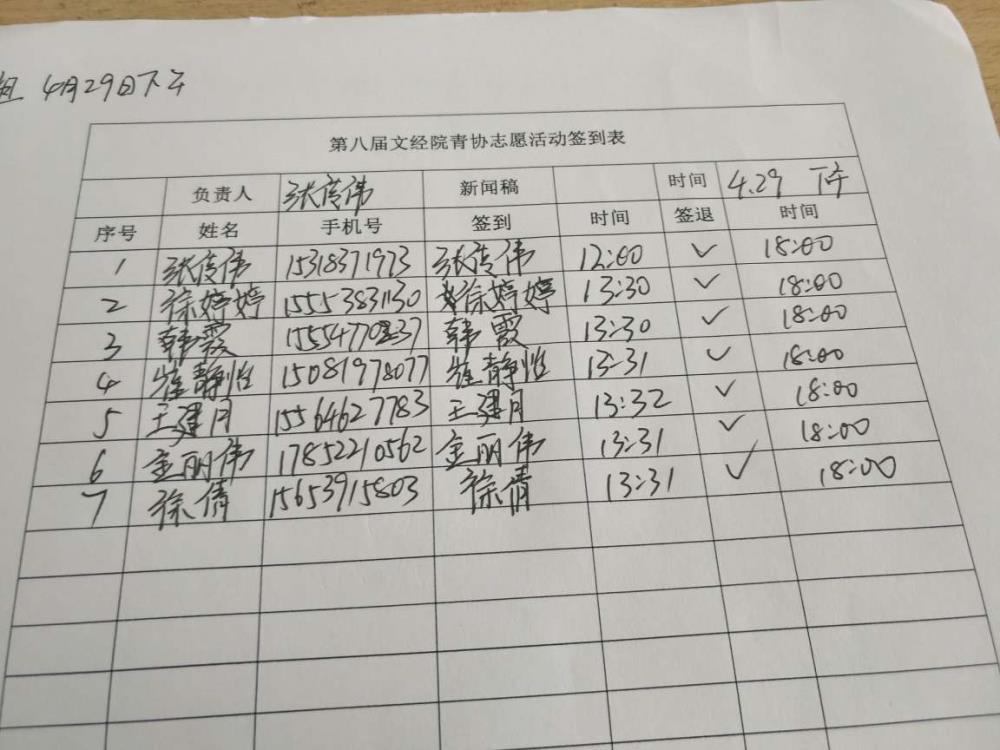 组 4月29日下午
第八届文经院青协志愿活动签到表
负责人 张传伟 新闻稿 时间 4.29 下午
序号 姓名 手机号 签到 时间 签退 时间
1 张传伟 15318371973 张传伟 12:00 ✓ 18:00
2 徐婷婷 15553831130 徐婷婷 13:30 ✓ 18:00
3 韩霞 韩霞 13:30 ✓ 18:00
4 崔静怡 15081978077 崔静怡 13:31 ✓ 18:00
5 王建月 15564627783 王建月 13:32 ✓ 18:00
6 金丽伟 17852210562 金丽伟 13:31 ✓ 18:00
7 徐倩 15653915803 徐倩 13:31 ✓ 18:00